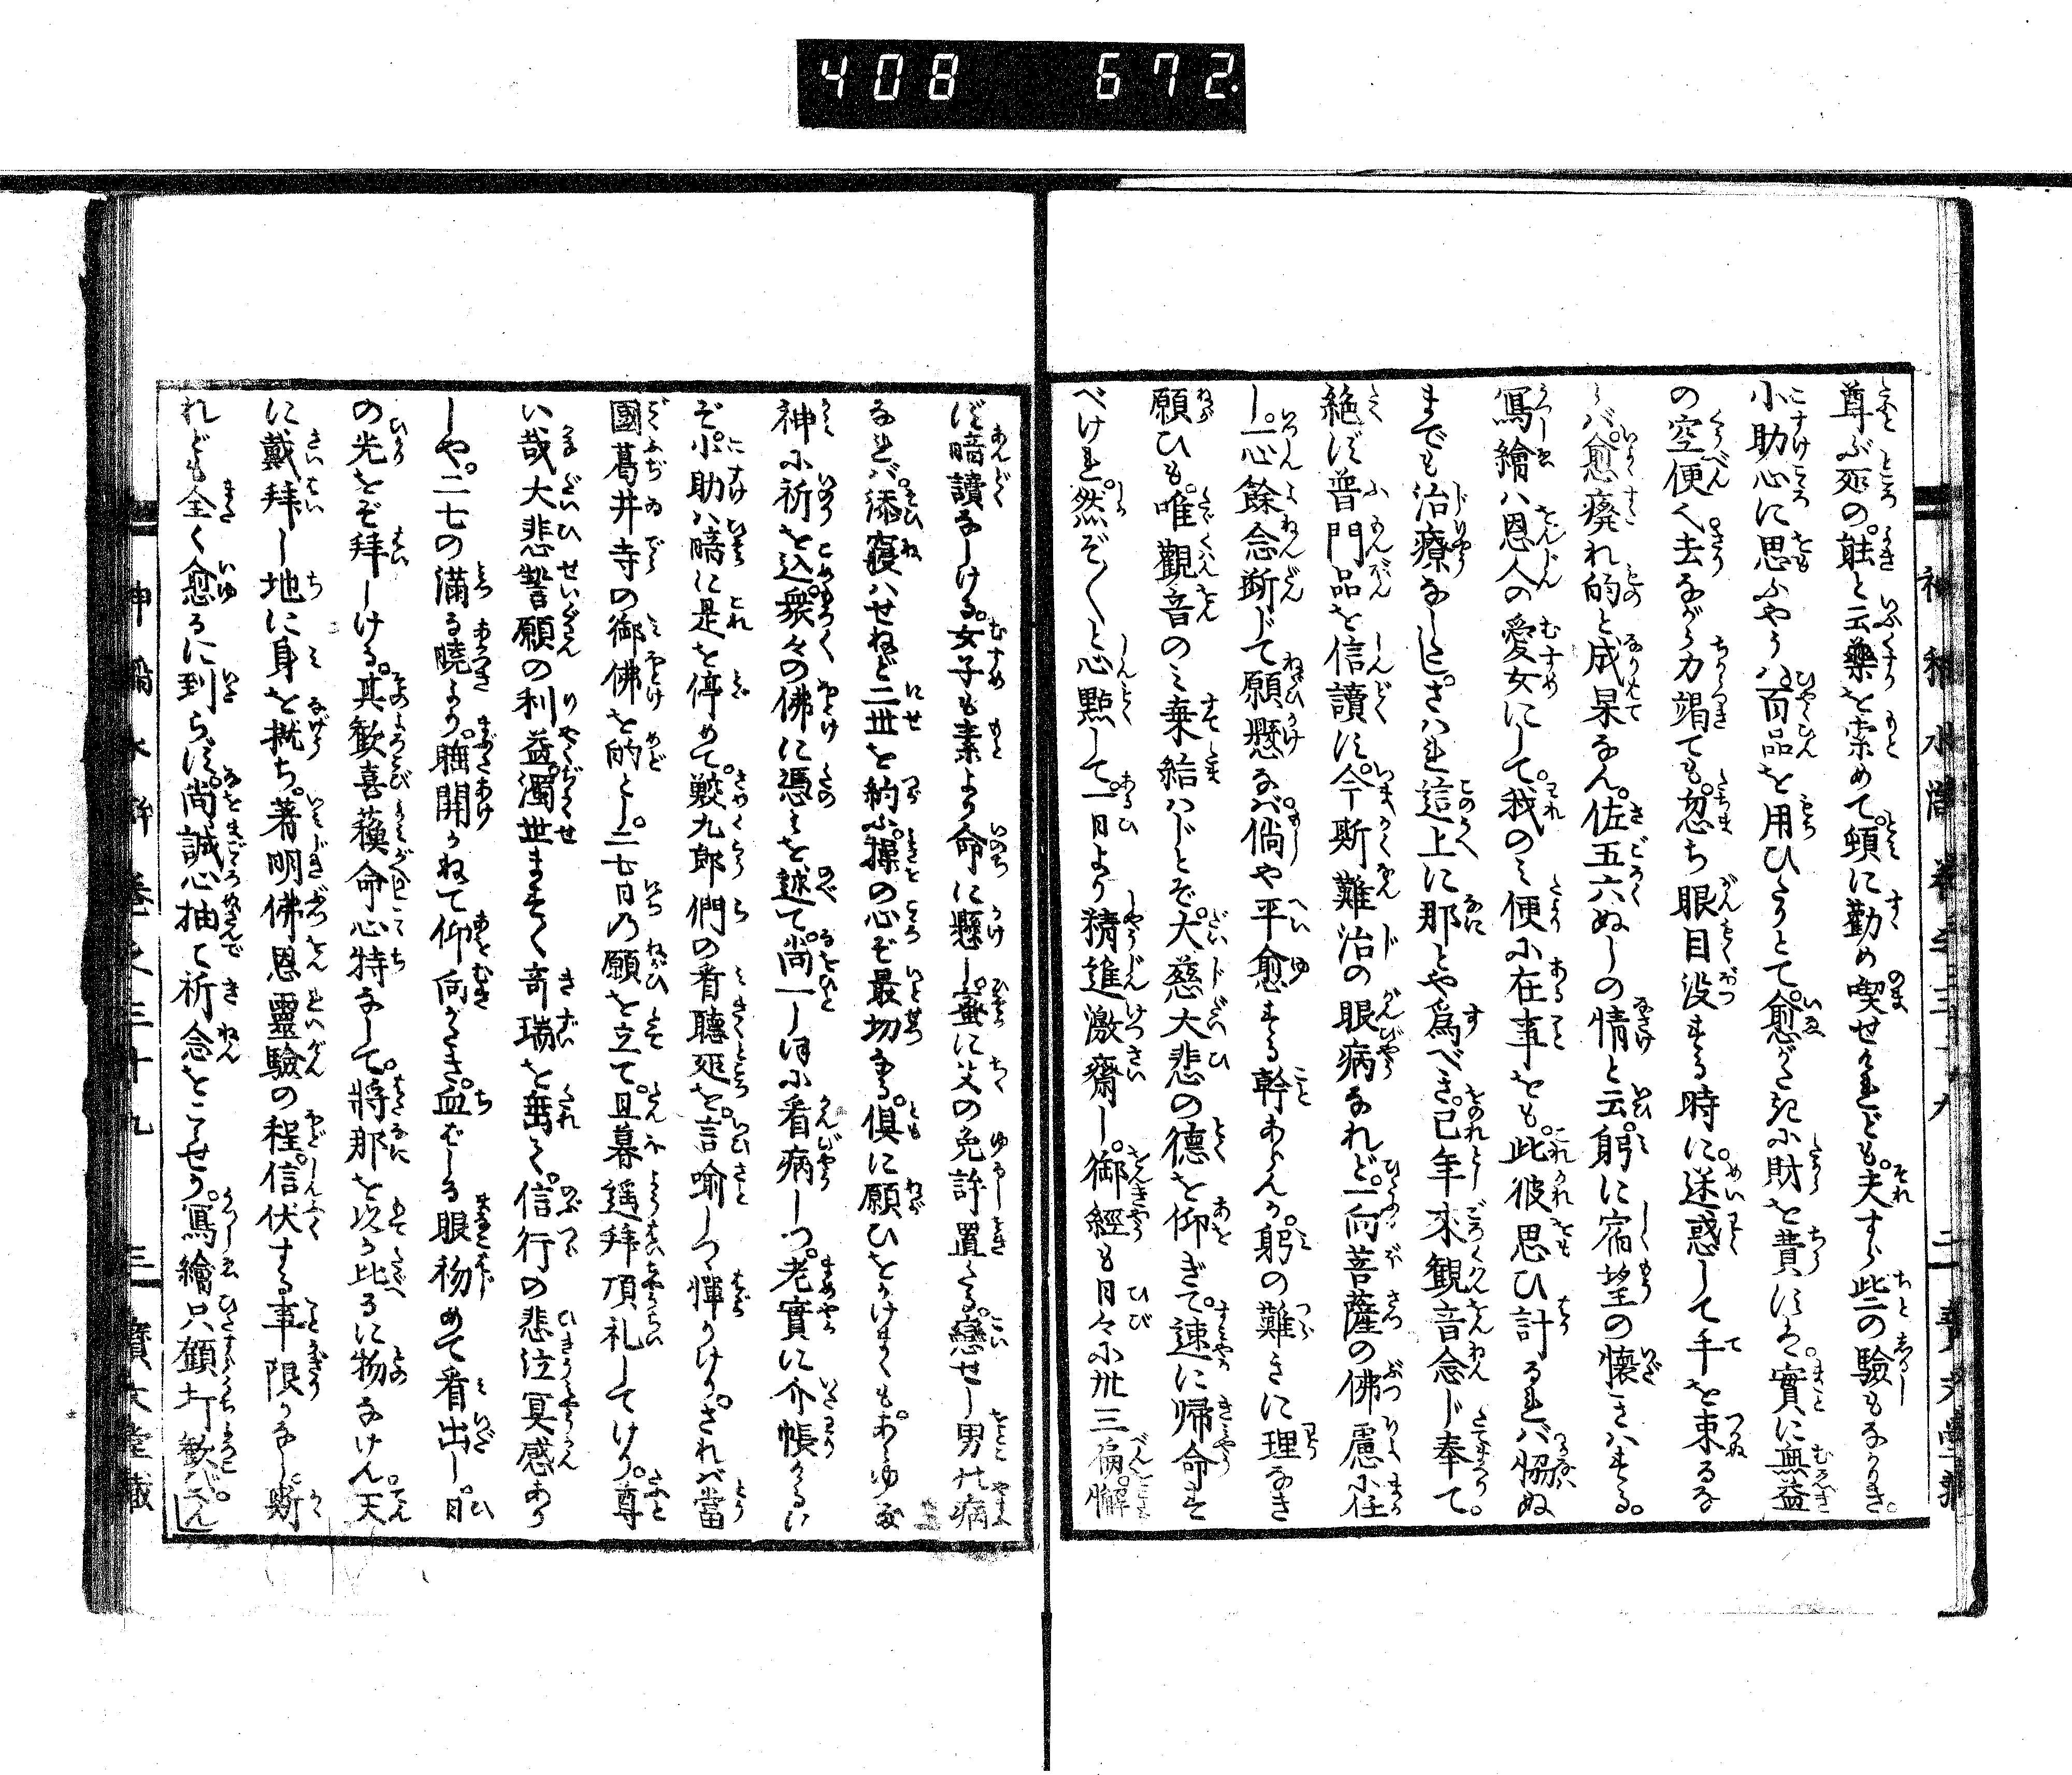 408 672.
尊ぶ死の。能と云藥を索めて頻に勸め喫せけれども。夫すら些の驗もなかりき。
小助心に思ふやう。百品を用ひたりとて。愈がたきに財を費すは。實に無益
の空便く去ながら力竭ても。忽ち眼目没する時に。迷惑して手を束るな
らバ。愈廃れ的と成果なん。佐五六ぬしの情と云。躬に宿望の懐きハする。
寫繪ハ恩人の愛女にして。我のミ便に在事をも。此彼思ひ計るれバ恊ぬ
までも治療なし。さハれ這上に那とや為べき。己年来観音念じ奉て。
絶ず普門品を信讀す。今斯難治の眼病なれど。一向菩薩の佛慮に任
し。一心餘念断じて願懸なバ。倘や平愈する幹あらんか。躬の難きに理なき
願ひも。唯觀音のミ棄給ハじとぞ。大慈大悲の徳を仰ぎて。速に帰命す
べけれ。然ぞ〱と心點して。一日より精進激齋し。御經も日々に卅三徧。懈
ず暗讀なしける。女子も素より命に懸し。蚤に父の免許置たる。戀せし男の病
なれバ。添寝ハせねど二世を約ぶ。操の心ぞ最切なる。俱に願ひをかけまくもあらゆる
神に祈を込。衆々の佛に憑ミを述て。尚一しほに看病しつ。老實に介帳かるハ
ぞ。小助ハ暗に是を停めて。鮫九郎們の看聴死を。言喻しつゝ憚りけり。されバ當
國葛井寺の御佛を的とし。二七日の願を立て。旦暮遥拝頂礼してけり。尊
い哉大悲誓願の利益。濁世まそく奇瑞を垂ミ。信行の悲泣冥感あり
しや。二七の満る曉より。睚開かねて仰向がたき。血ばしる眼初めて看出し。日
の光をぞ拝しける。其歡喜藐命心特なして。將那を以か比るに物なけん。天
に戴拜し地に身を抛ち。著明佛恩靈驗の程。信伏する事限りなし。斯
れども全く愈るに到らず。尚誠心抽で祈念をこらせり。寫繪只顧打歎バ。
神稲水滸巻之三十九 三 寶文堂藏